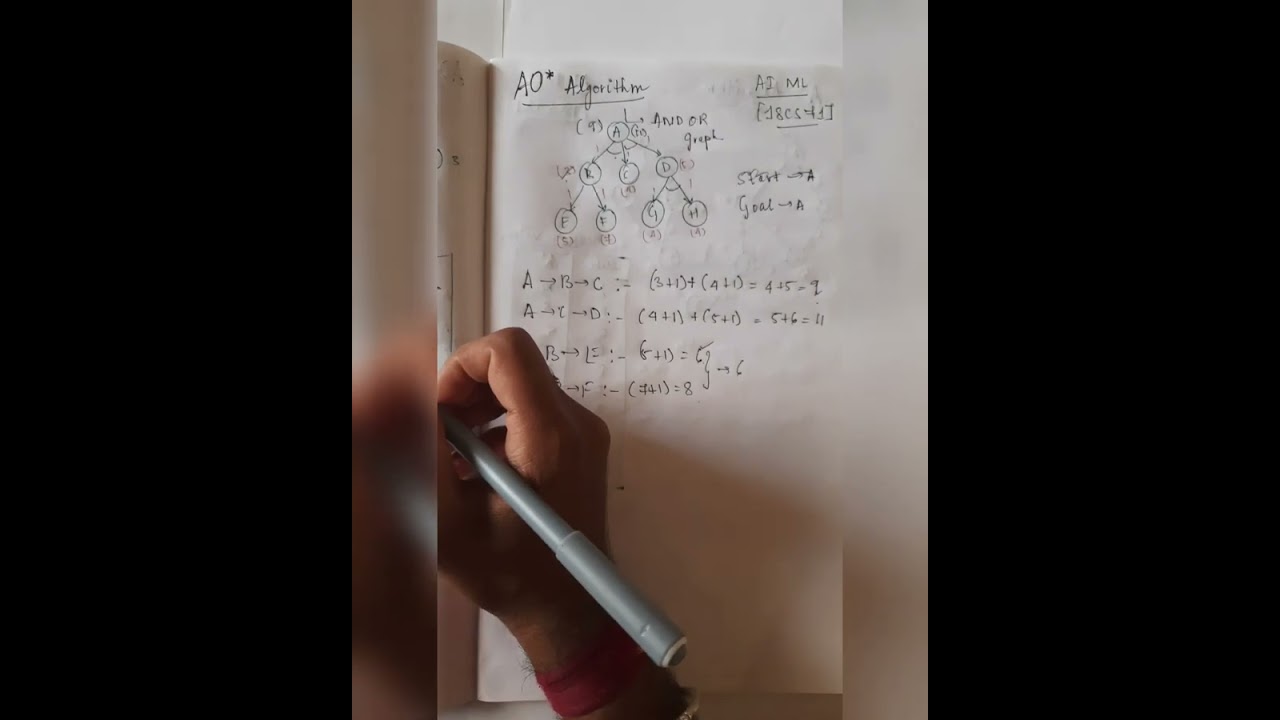 AO* Algorithm
AI ML
[18CS71]
AND OR
graph
(9) A (10)
B C D (5)
E F G H
(5) (7) (4) (4)
Start → A
Goal → A
A → B → C :- (3+1)+(4+1) = 4+5 = 9
A → C → D :- (4+1)+(5+1) = 5+6 = 11
B → E :- (5+1) = 6
→ F :- (7+1) = 8
→ 6